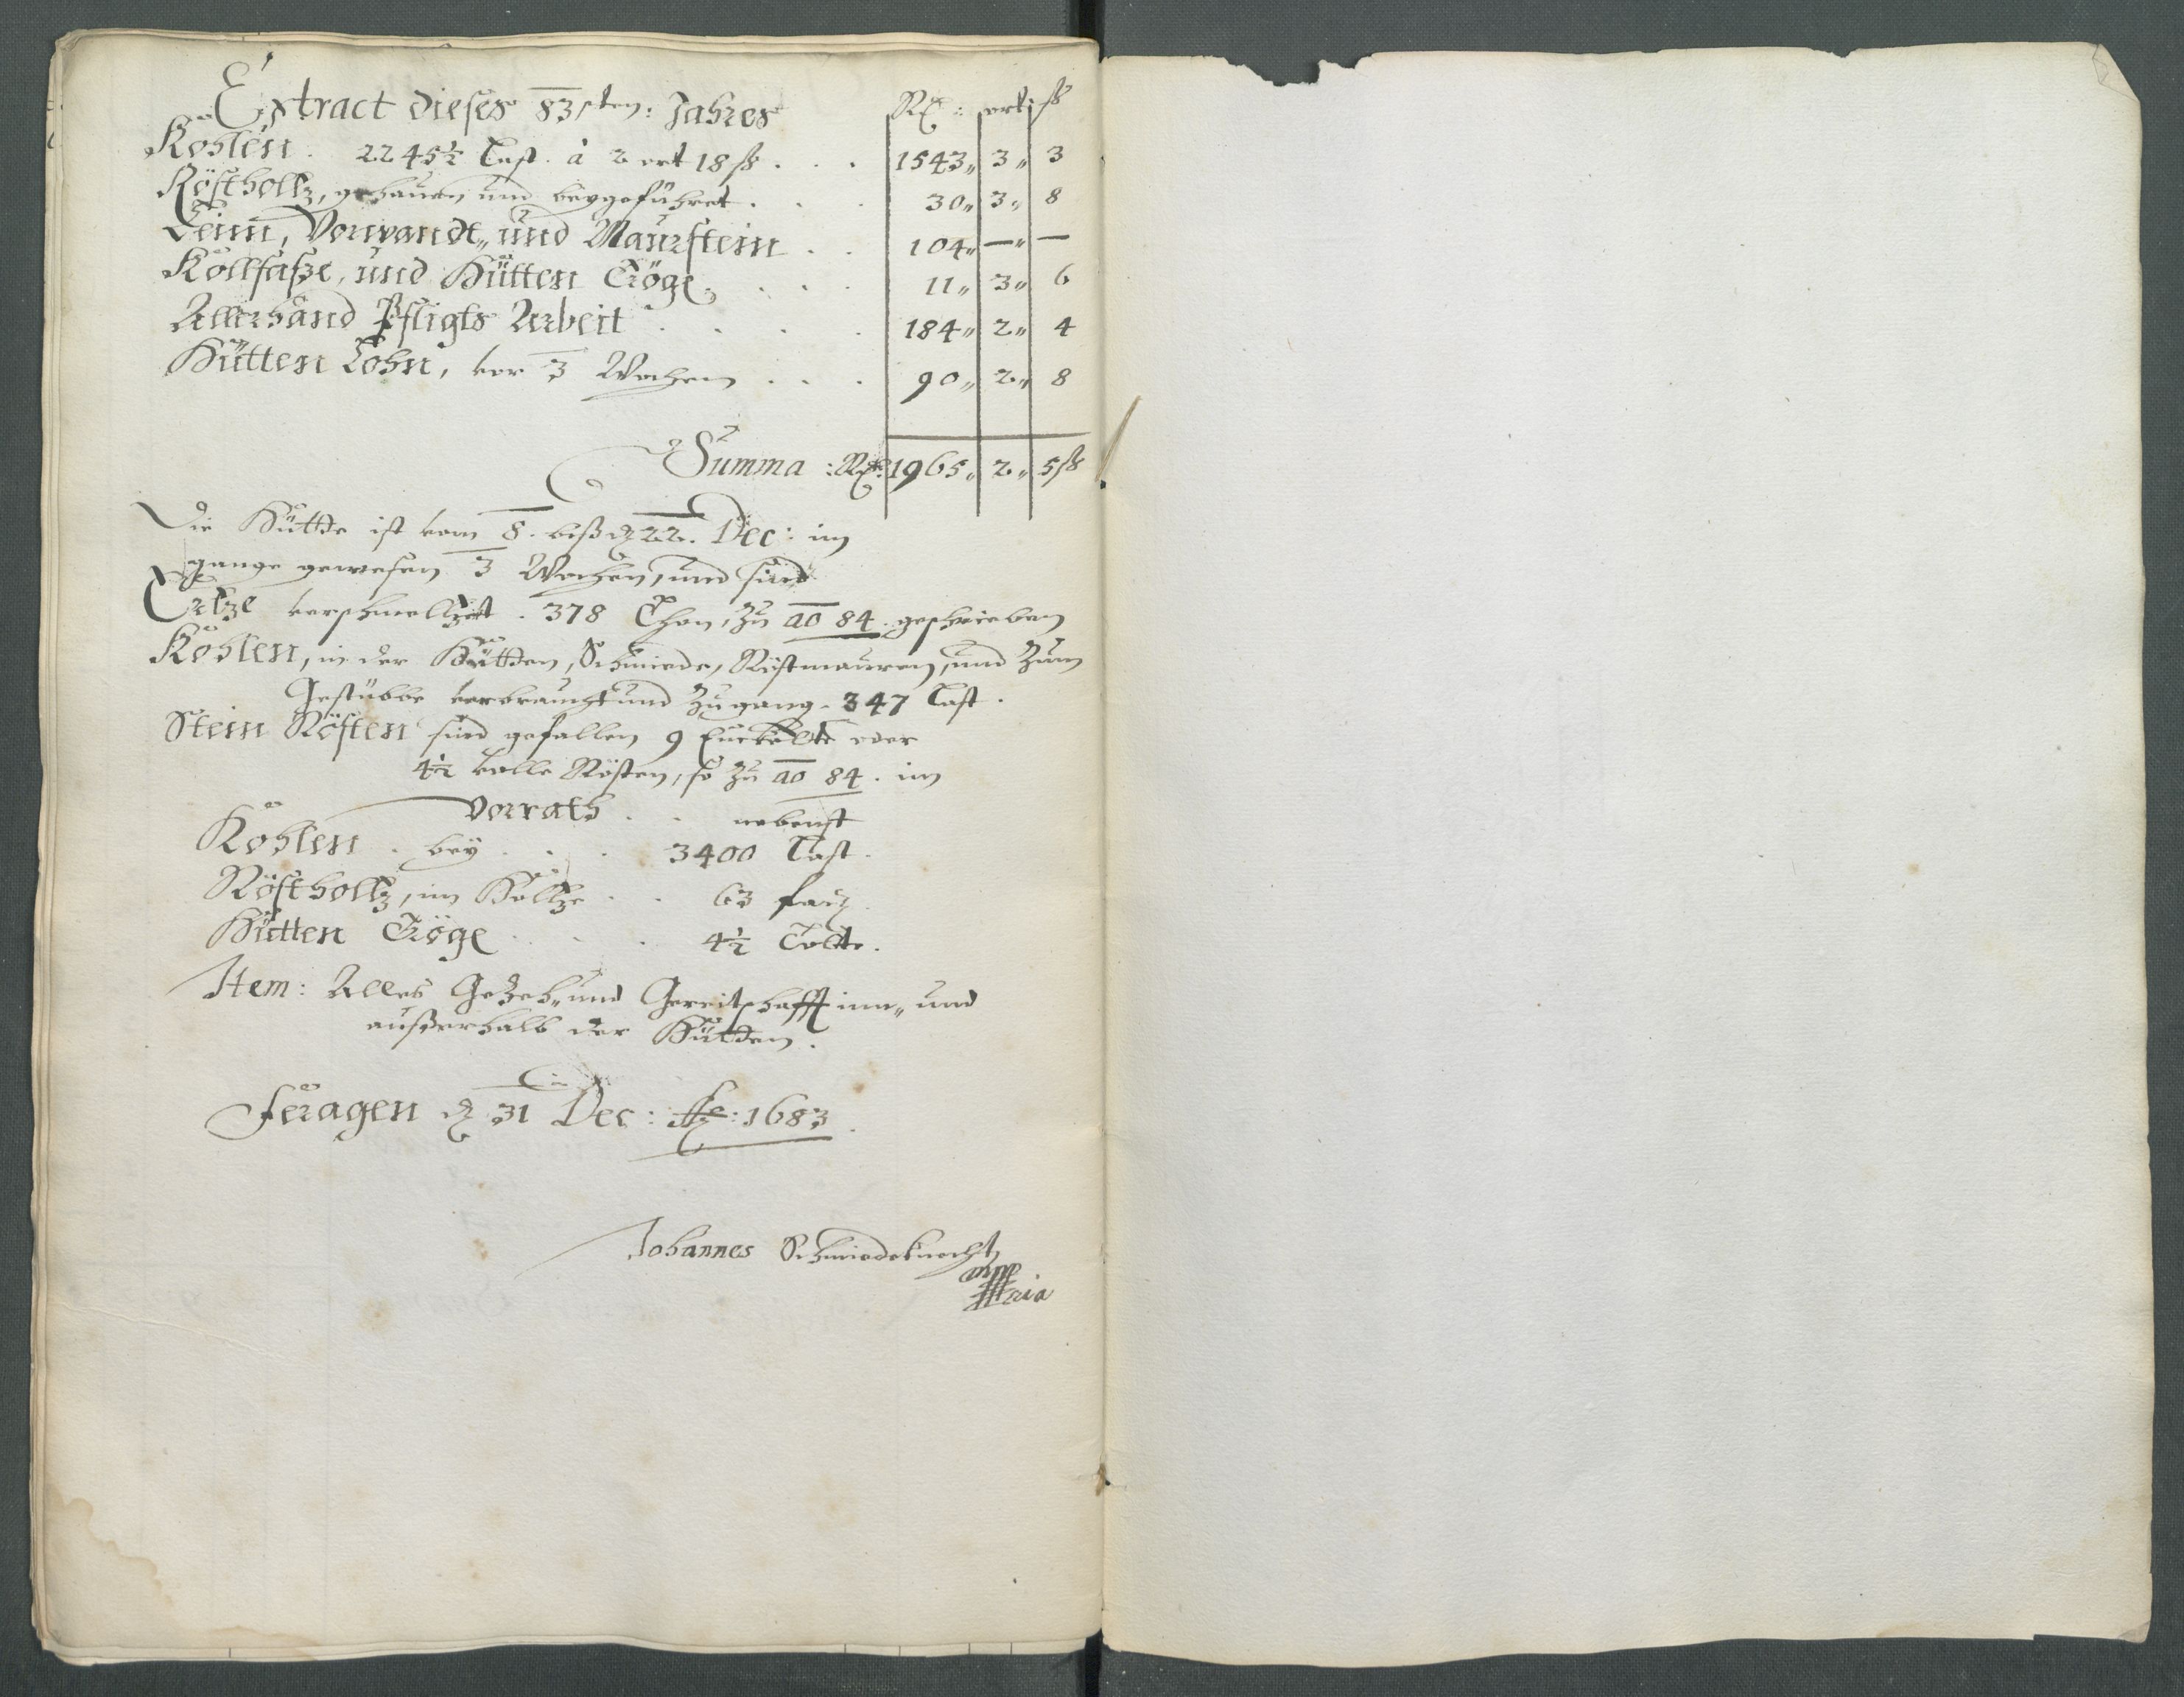 Extract dieses 83sten: Jahres Rx: ort: ß
Kohlen. 2245½ Last. à 2 ort 18 ß . . . 1543„ 3„ 3
Röstholtz, gehauen und beygeführet . . . 30„ 3„ 8
Leim, Vorwandt„ und Maurstein . . 104„ —„ —
Kollfaße, und Hütten Tröge . . . . 11„ 3„ 6
Allerhand Pfligts Arbeit . . . . 184„ 2„ 4
Hütten Lohn, vor 3 Wochen . . . 90„ 2„ 8
Summa: Rx: 1965„ 2„ 5 ß
Die Hütte ist vom 8. biß d 22. Dec: im
gange gewesen 3 Wochen, und sind
Ertze verschmeltzet . 378 Thon, zu ao 84. geschrieben
Kohlen, in der Hütten, Schmiede, Röstmauren, und zum
Gestübbe verbraucht und Zugang. 347 Last.
Stein Rösten sind gefallen 9 oder
4½ volle Rösten, so zu ao 84. im
Vorrath . . nebenst
Kohlen . bey . . . 3400 Last.
Röstholtz, im Holtze . . 63 fav
Hütten Tröge . . . 4½ Tolte.
Item: Alles Gezeh„ und Gereitschafft inn„ und
außerhalb der Hütten.
Feragen d 31 Dec: 1683.
Johannes Schmiedeknecht
mppria